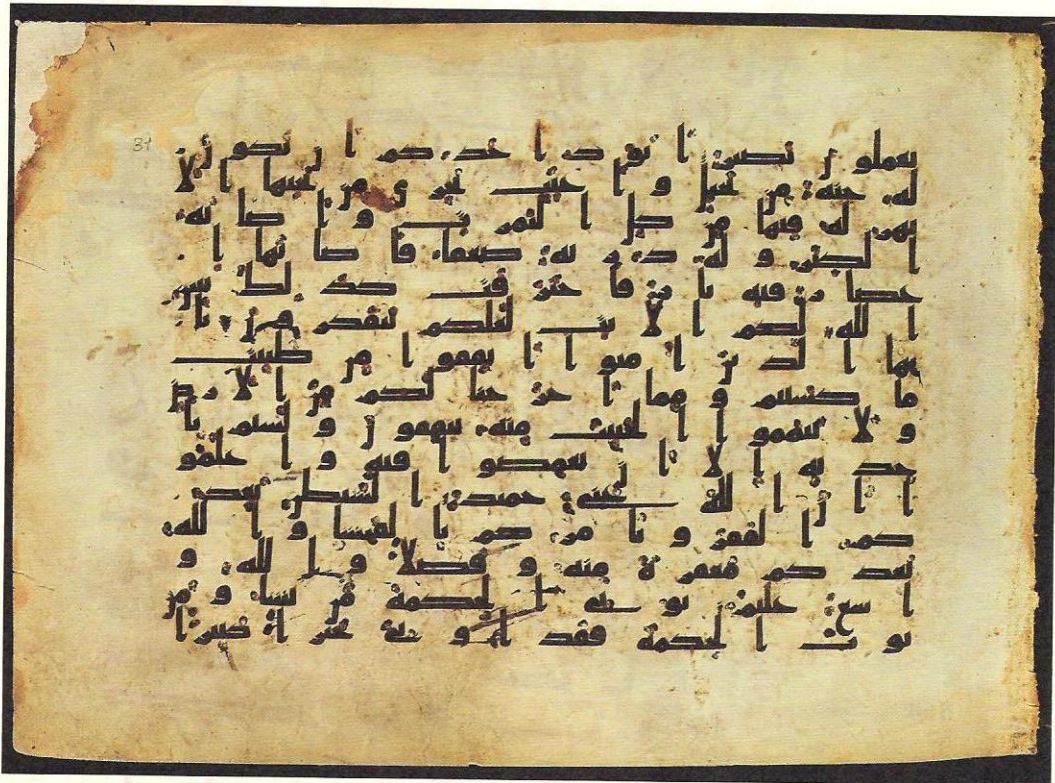 31
تعملون بصير ايود احدكم ان تكون
له جنة من نخيل واعنب تجري من تحتها الا
نهر له فيها من كل الثمرت واصابه
الكبر وله ذرية ضعفا فاصابها ا
عصار فيه نار فاحترقت كذلك يبين
الله لكم الايت لعلكم تتفكرون يا
يها الذين امنوا انفقوا من طيبت
ما كسبتم ومما اخرجنا لكم من الارض
ولا تيمموا الخبيث منه تنفقون ولستم با
خذيه الا ان تغمضوا فيه واعلمو
ا ان الله غني حميد الشيطن يعد
كم الفقر ويامركم بالفحشا والله
يعدكم مغفرة منه وفضلا والله و
اسع عليم يوتي الحكمة من يشا ومن
يوت الحكمة فقد اوتي خيرا كثيرا